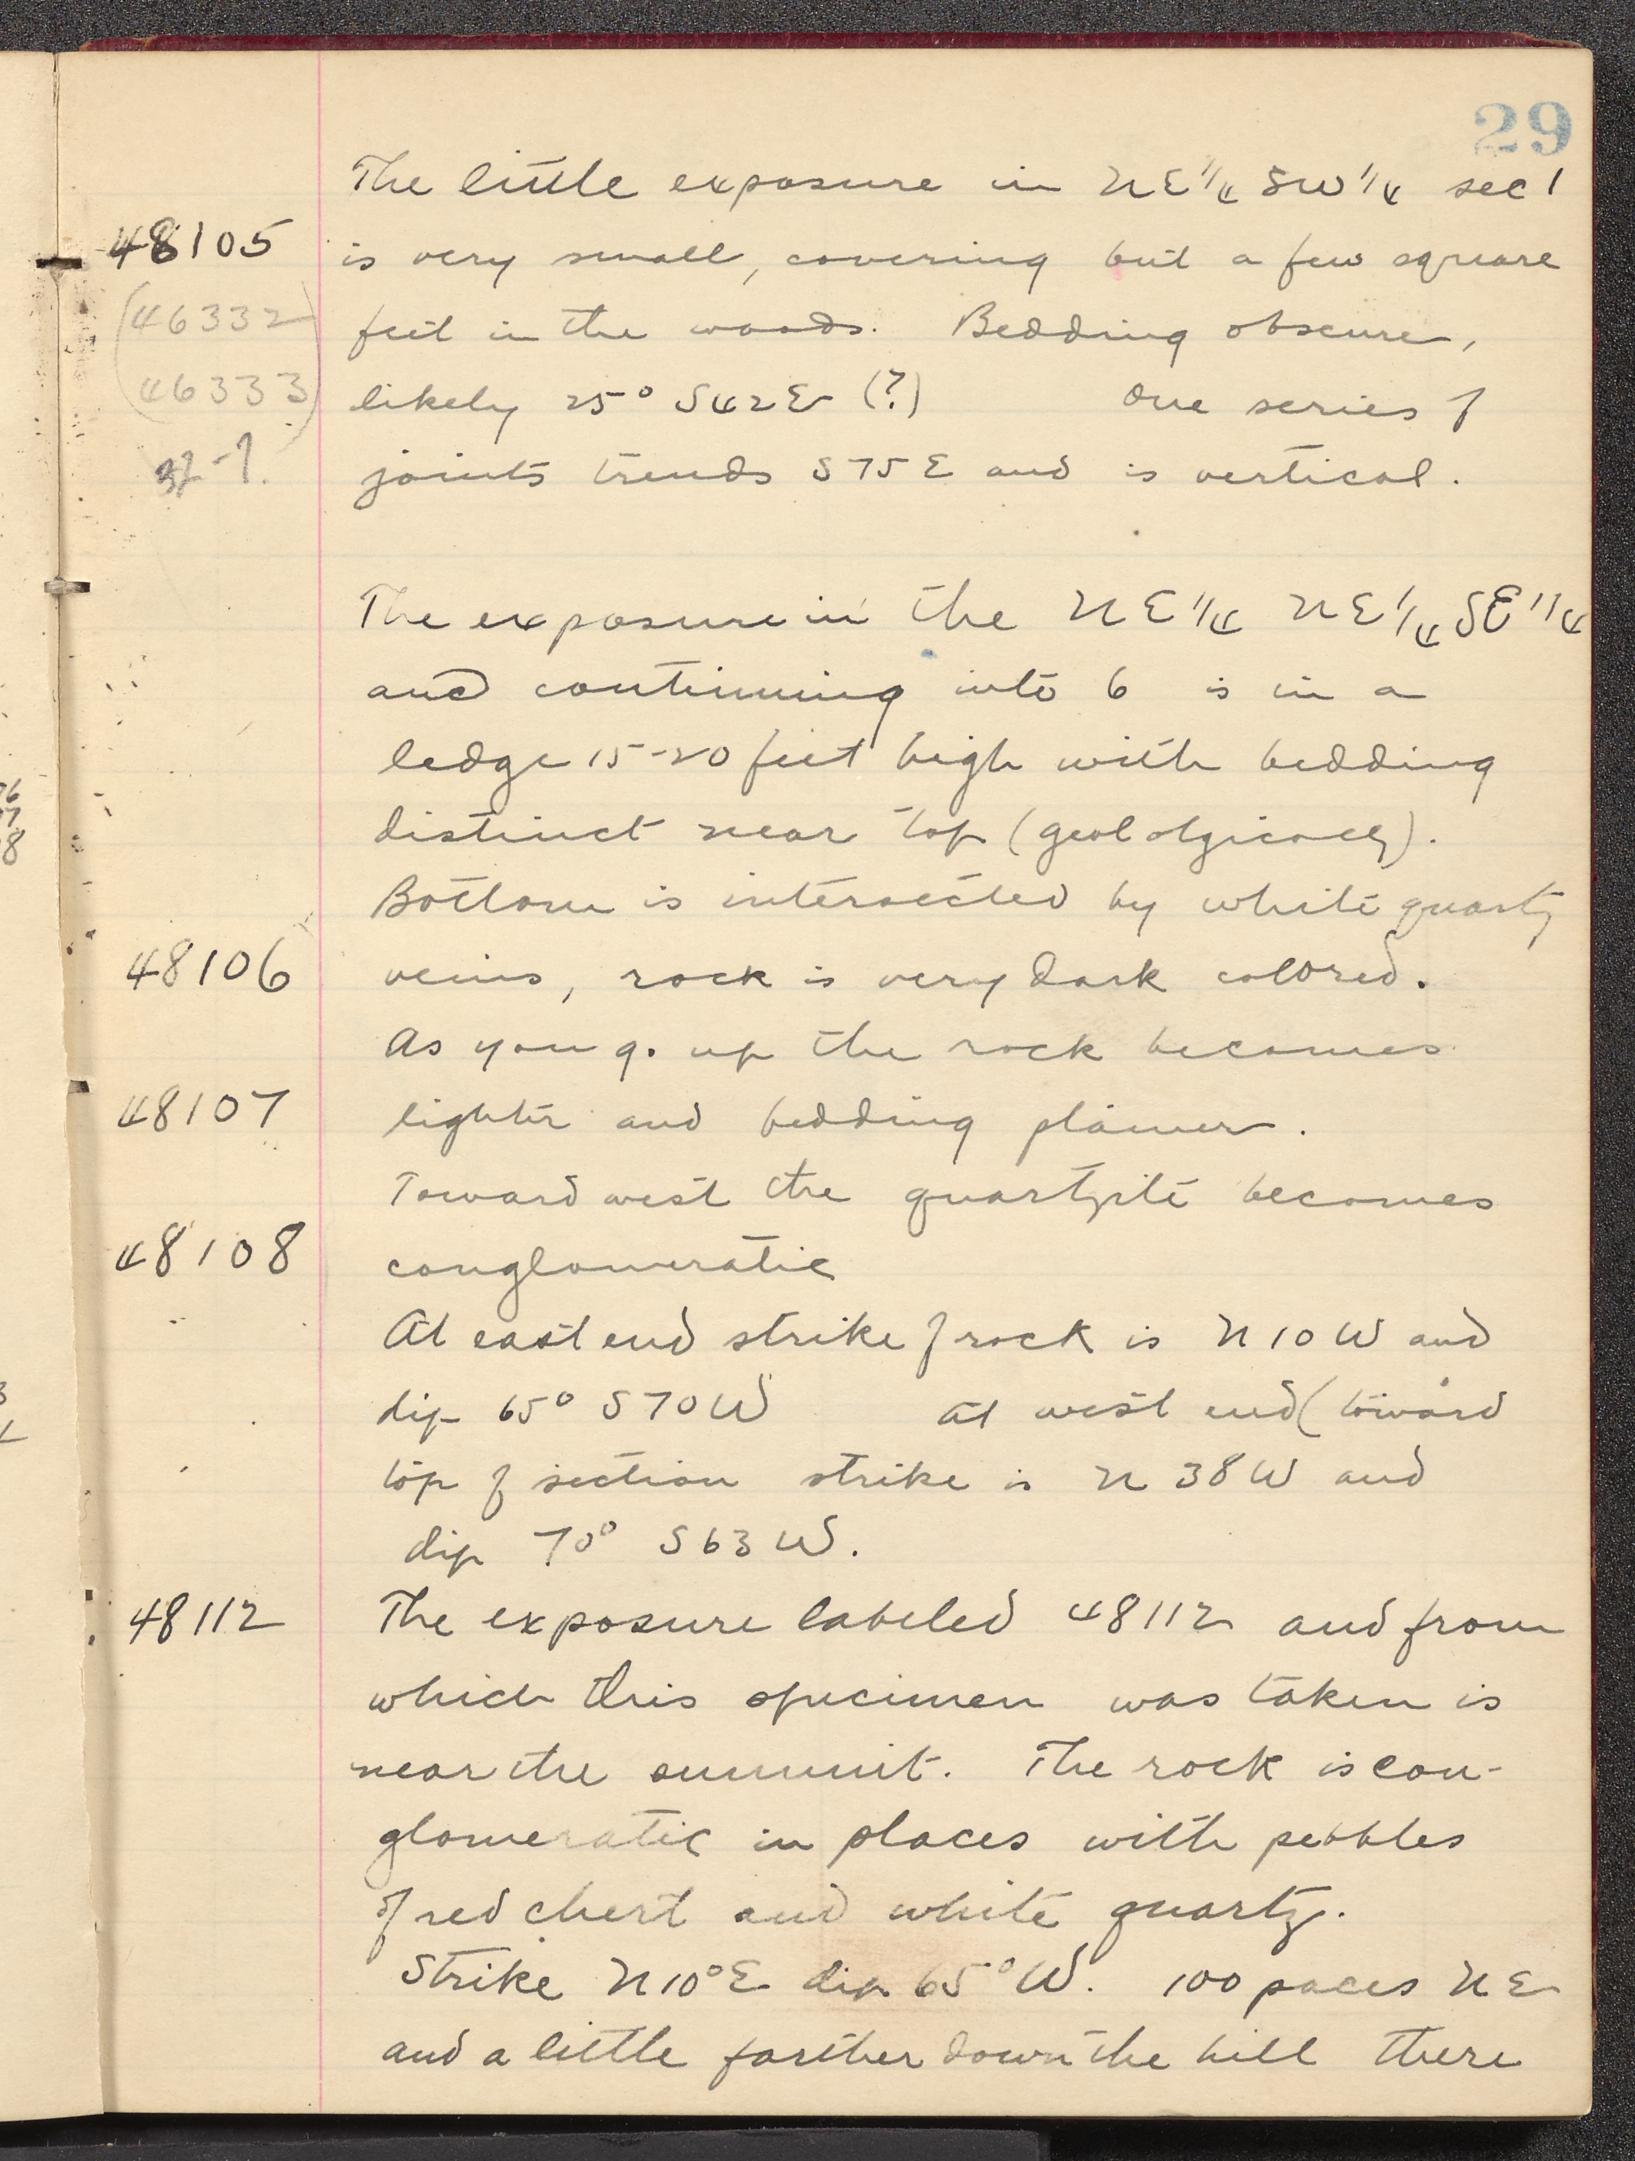 29
The little exposure in NE 1/4 SW 1/4 sec 1
48105 is very small, covering but a few square
(46332 feet in the woods. Bedding obscure,
46333) likely 25° S42E (?) One series of
joints trends S75E and is vertical.
The exposure in the NE 1/4 NE 1/4 SE 1/4
and continuing into 6 is in a
ledge 15-20 feet high with bedding
distinct near top (geololgically).
Bottom is intersected by white quartz
48106 veins, rock is very dark colored.
As you go up the rock becomes
48107 lighter and bedding plainer.
Toward west the quartzite becomes
48108 conglomeratic
At east end strike of rock is N10W and
dip 65° S70W At west end (toward
top of section strike is N38W and
dip 70° S63W.
48112 The exposure labeled 48112 and from
which this specimen was taken is
near the summit. The rock is con-
glomeratic in places with pebbles
of red chert and white quartz.
Strike N10°E dip 65°W. 100 paces NE
and a little farther down the hill there